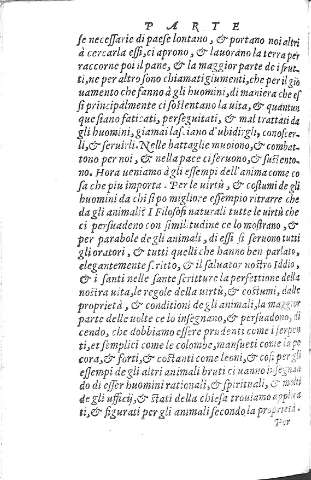 PARTE
se necessarie di paese lontano, & portano noi altri
à cercarla essi, ci aprono, & lauorano la terra per
raccorne poi il pane, & la maggior parte de i frut-
ti, ne per altro sono chiamati giumenti, che per il gio
uamento che fanno à gli huomini, di maniera che es
si principalmente ci sostentano la uita, & quantun
que siano faticati, perseguitati, & mal trattati da
gli huomini, giamai lasciano d'ubidirgli, conoscer-
li, & seruirli. Nelle battaglie muoiono, & combat-
tono per noi, & nella pace ci seruono, & sustento-
no. Hora ueniamo à gli essempi dell'anima come co
sa che piu importa. Per le uirtù, & costumi de gli
huomini da chi si po migliore essempio ritrarre che
da gli animali? I Filosofi naturali tutte le uirtù che
ci persuadeno con similitudine ce lo mostrano, &
per parabole de gli animali, di essi si seruono tutti
gli oratori, & tutti quelli che hanno ben parlato,
elegantemente scritto, & il saluator nostro Iddio,
& i santi nelle sante scritture la perfettione della
nostra uita, le regole della uirtù, & costumi, dalle
proprietà, & conditioni de gli animali, la maggior
parte delle uolte ce lo insegnano, & persuadono, di
cendo, che dobbiamo essere prudenti come i serpen
ti, et semplici come le colombe, mansueti come la pe
cora, & forti, & costanti come leoni, & cosi per gli
essempi de gli altri animali bruti ci uanno insegnan
do di esser huomini rationali, & spirituali, & molti
de gli ufficij, & stati della chiesa trouiamo applica
ti, & figurati per gli animali secondo la proprietà.
Per